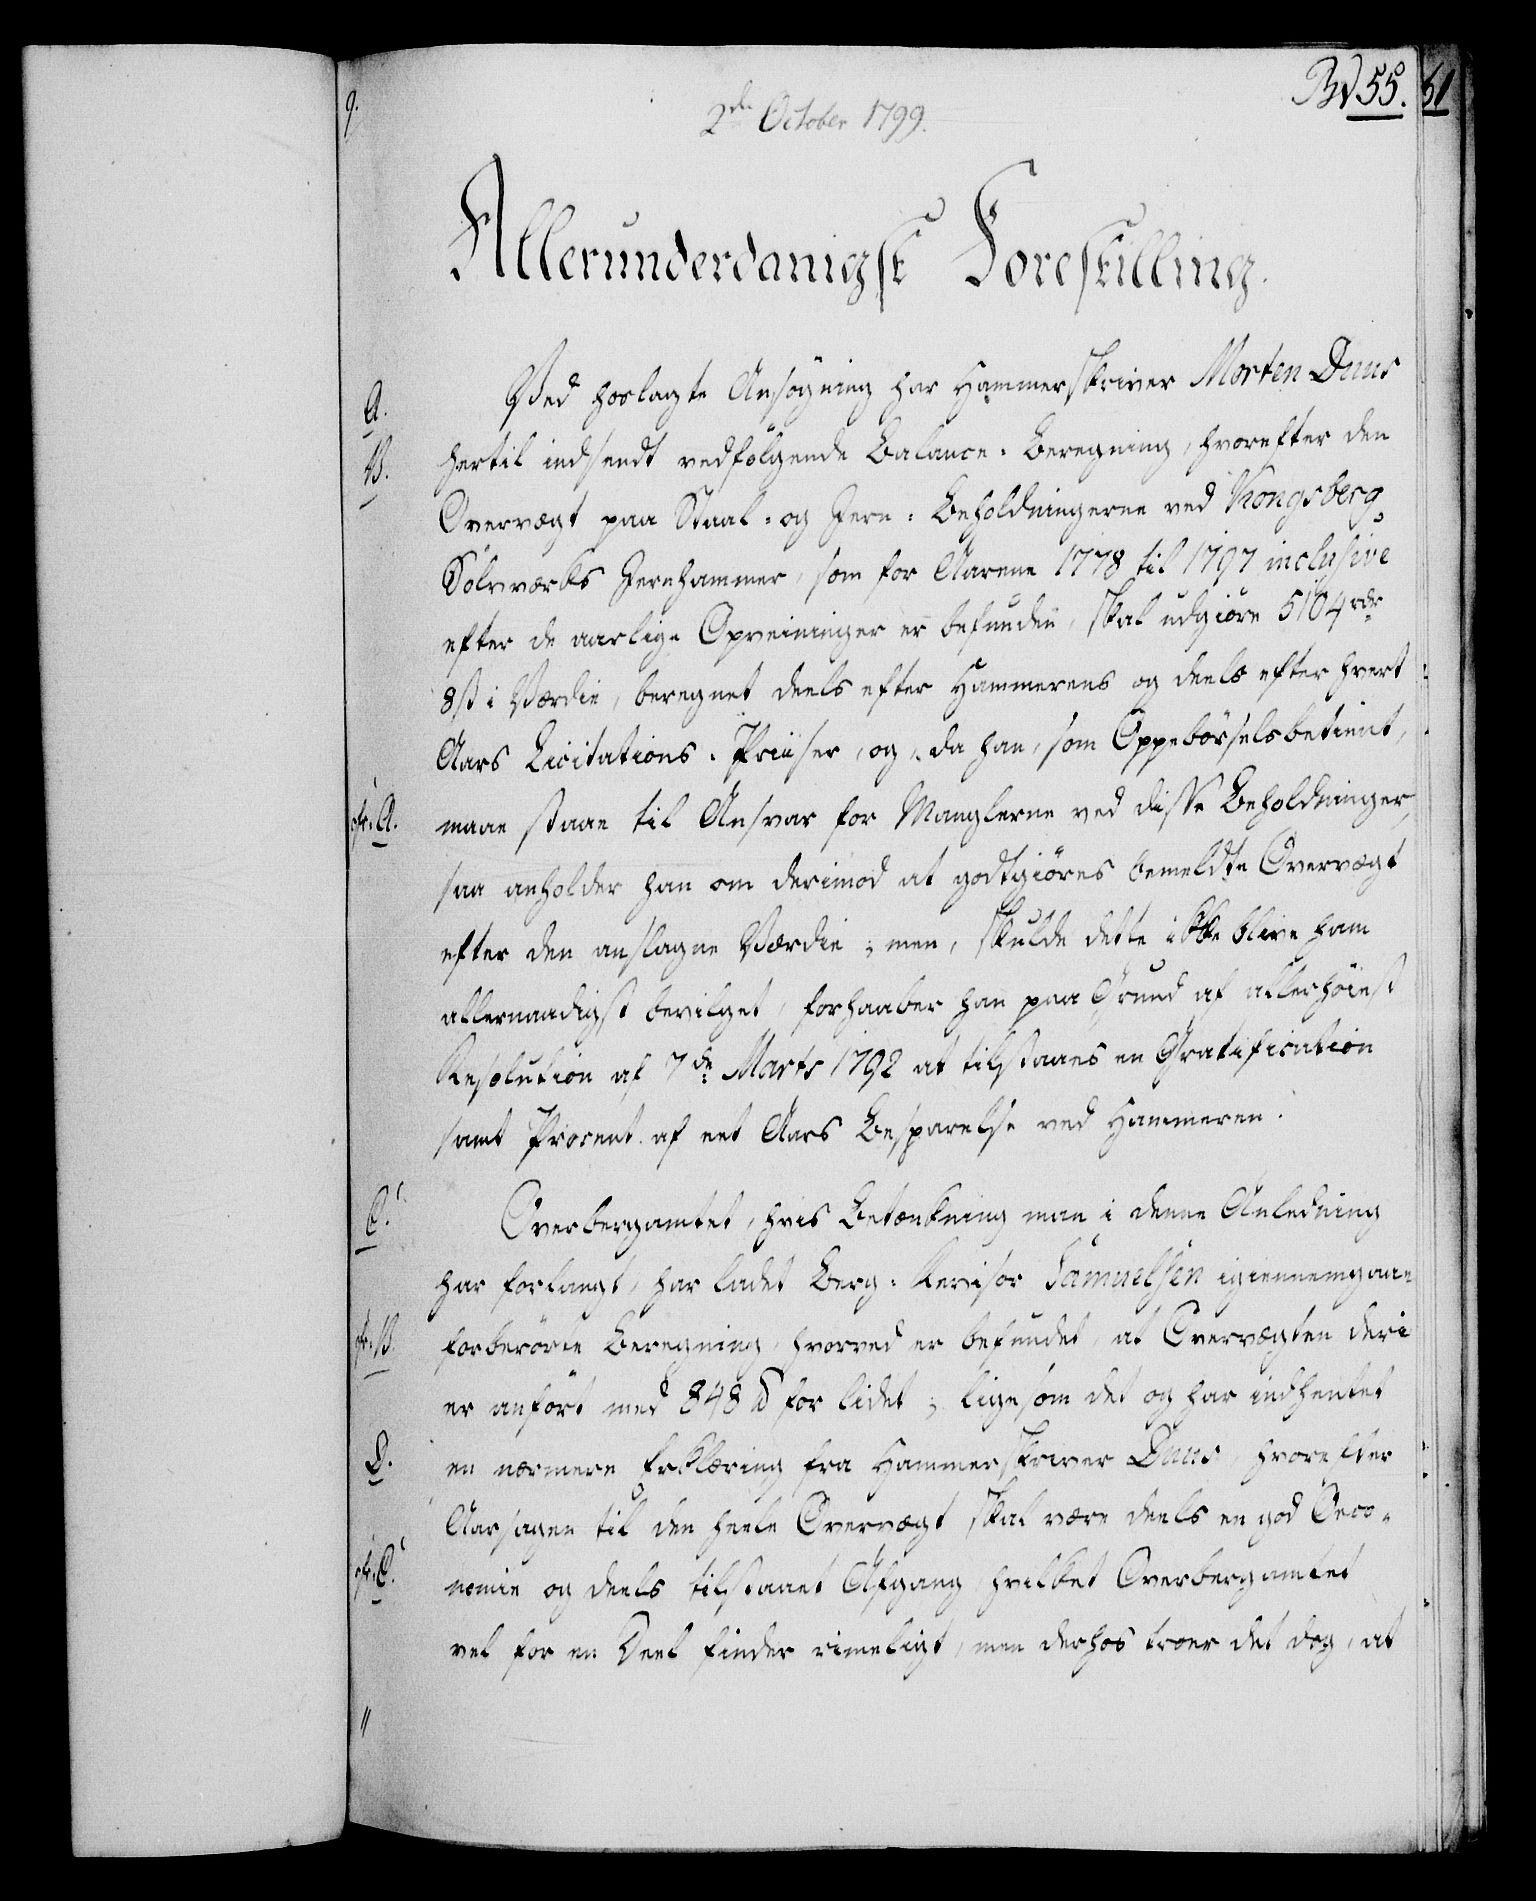 Bd 55. 61
2den October 1799.
Allerunderdanigst Forestilling.
A. Ved hoslagte Ansøgning har Hammerskriver Morten Duus
B. hertil indsendt vedfølgende Balance-Beregning, hvorefter den
Overvægt paa Staal- og Jern-Beholdningerne ved Kongsberg
Sølvværks Jernhammer, som for Aarene 1778 til 1797 inclusive
efter de aarlige Opveininger er befunden, skal udgiøre 5104 rdr
8 ß i Værdie, beregnet deels efter Hammerens og deels efter hvert
Aars Licitations-Priiser, og, da han, som Oppebørselsbetient,
cfr. A. maae staae til Ansvar for Manglerne ved disse Beholdninger,
saa anholder han om derimod at godtgiøres bemeldte Overvægt
efter den anslagne Værdie; men, skulde dette ikke blive ham
allernaadigst bevilget, forhaaber han paa Grund af allerhøiest
Resolution af 7de Marts 1792 at tilstaaes en Gratification
samt Procent af eet Aars Besparelse ved Hammeren.
C. Overbergamtet, hvis Betænkning man i denne Anledning
har forlangt, har ladet Berg-Revisor Samuelsen igiennemgaae
cfr. B. forberørte Beregning, hvorved er befundet, at Overvægten deri
er anført med 848 ℔ for lidet; ligesom det og har indhentet
D. en nærmere Erklæring fra Hammerskriver Duus, hvorefter
Aarsagen til den heele Overvægt skal være deels en god Oeco-
cfr. C. nomie og deels tilstaaet Afgang, hvilket Overbergamtet
vel for en Deel finder rimeligt, men derhos troer det dog, at